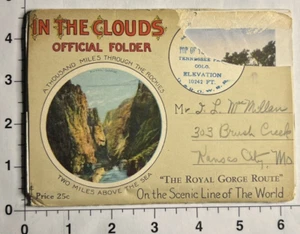 IN THE CLOUDS
OFFICIAL FOLDER
A THOUSAND MILES THROUGH THE ROCKIES
TWO MILES ABOVE THE SEA
Price 25c
TOP OF
TENNESSEE PASS
COLO.
ELEVATION
10242 FT.
Mr J. L. McMillan
303 Brush Creek
Kansas City, Mo
"THE ROYAL GORGE ROUTE"
On the Scenic Line of The World
0
1
2
3
4
0
1
2
3
4
5
6